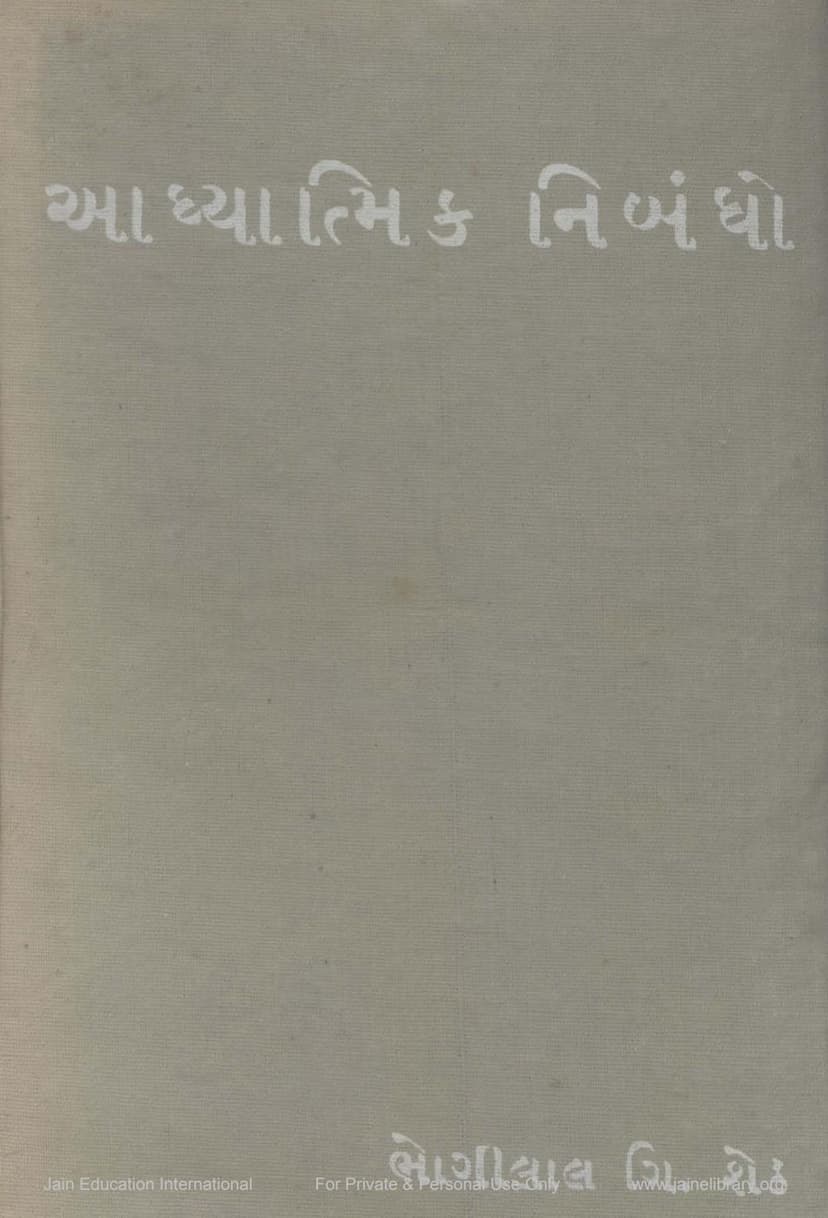 આધ્યાત્મિક નિબંધો
ભોગીલાલ ગિ. શેઠ
Jain Education International For Private & Personal Use Only www.jainelibrary.org